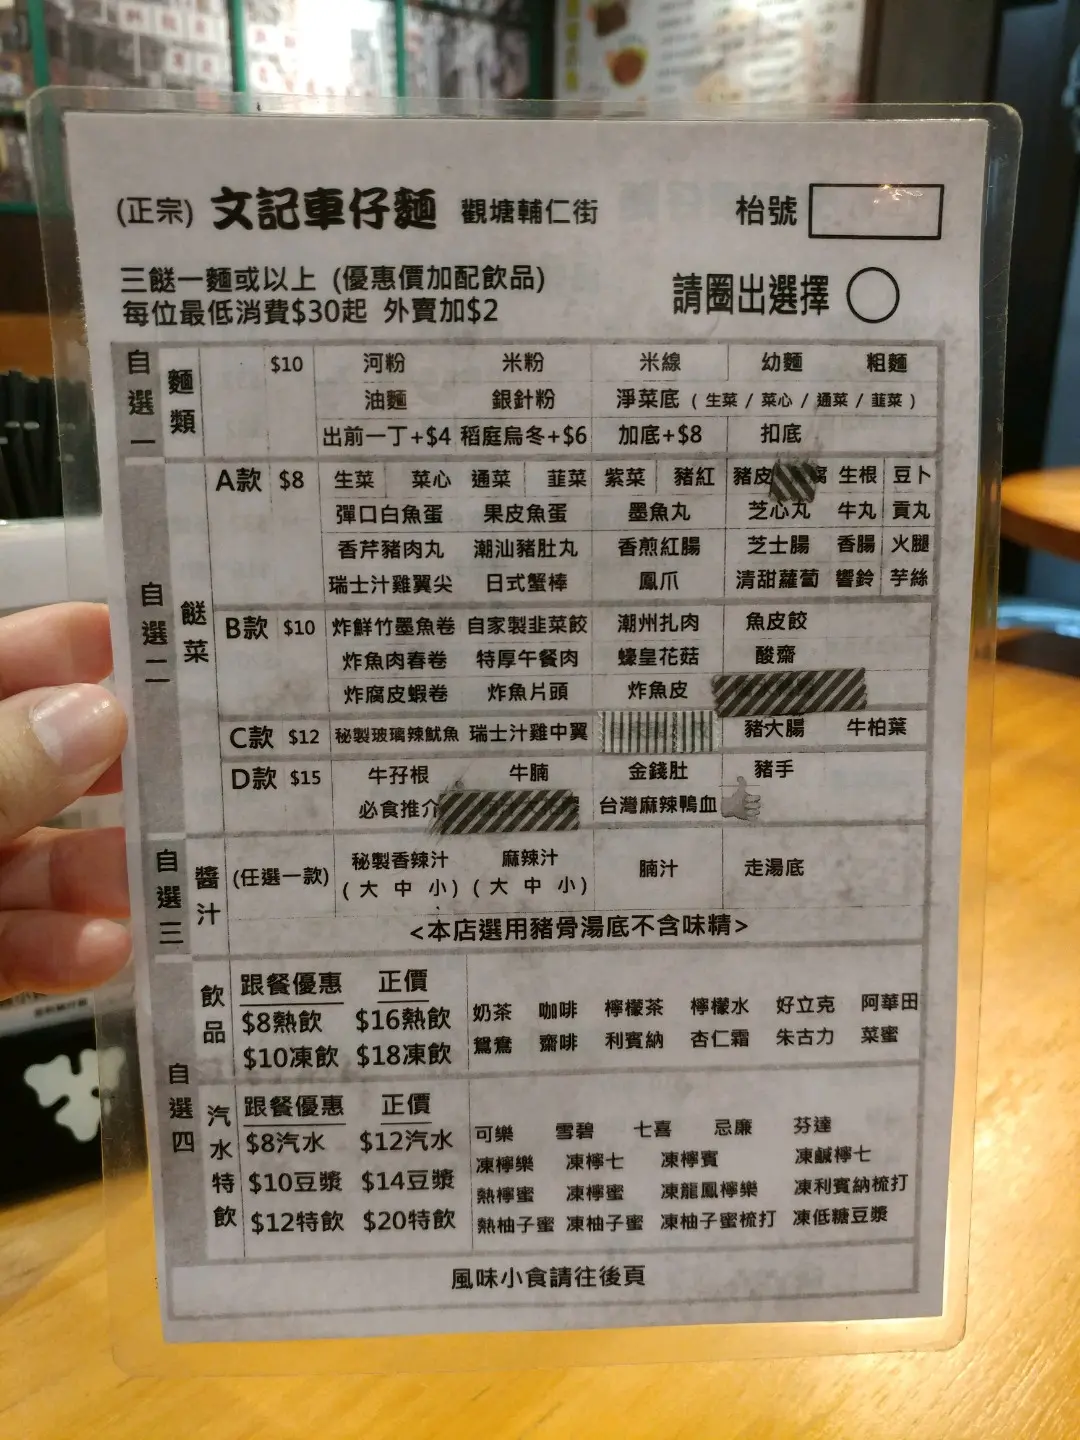 (正宗) 文記車仔麵 觀塘輔仁街 枱號
三餸一麵或以上 (優惠價加配飲品)
每位最低消費$30起 外賣加$2
請圈出選擇
自選一 麵類 $10 河粉 米粉 米線 幼麵 粗麵
油麵 銀針粉 淨菜底 ( 生菜 / 菜心 / 通菜 / 韮菜 )
出前一丁+$4 稻庭烏冬+$6 加底+$8 扣底
自選二 餸菜
A款 $8 生菜 菜心 通菜 韮菜 紫菜 豬紅 豬皮 腐 生根 豆卜
彈口白魚蛋 果皮魚蛋 墨魚丸 芝心丸 牛丸 貢丸
香芹豬肉丸 潮汕豬肚丸 香煎紅腸 芝士腸 香腸 火腿
瑞士汁雞翼尖 日式蟹棒 鳳爪 清甜蘿蔔 響鈴 芋絲
B款 $10 炸鮮竹墨魚卷 自家製韭菜餃 潮州扎肉 魚皮餃
炸魚肉春卷 特厚午餐肉 蠔皇花菇 酸齋
炸腐皮蝦卷 炸魚片頭 炸魚皮
C款 $12 秘製玻璃辣魷魚 瑞士汁雞中翼 豬大腸 牛柏葉
D款 $15 牛孖根 牛腩 金錢肚 豬手
必食推介 台灣麻辣鴨血
自選三 醬汁 (任選一款) 秘製香辣汁 麻辣汁 腩汁 走湯底
( 大 中 小 ) ( 大 中 小 )
<本店選用豬骨湯底不含味精>
自選四
飲品 跟餐優惠 正價
$8熱飲 $16熱飲 奶茶 咖啡 檸檬茶 檸檬水 好立克 阿華田
$10凍飲 $18凍飲 鴛鴦 齋啡 利賓納 杏仁霜 朱古力 菜蜜
汽水特飲 跟餐優惠 正價
$8汽水 $12汽水 可樂 雪碧 七喜 忌廉 芬達
凍檸樂 凍檸七 凍檸賓 凍鹹檸七
$10豆漿 $14豆漿 熱檸蜜 凍檸蜜 凍龍鳳檸樂 凍利賓納梳打
$12特飲 $20特飲 熱柚子蜜 凍柚子蜜 凍柚子蜜梳打 凍低糖豆漿
風味小食請往後頁